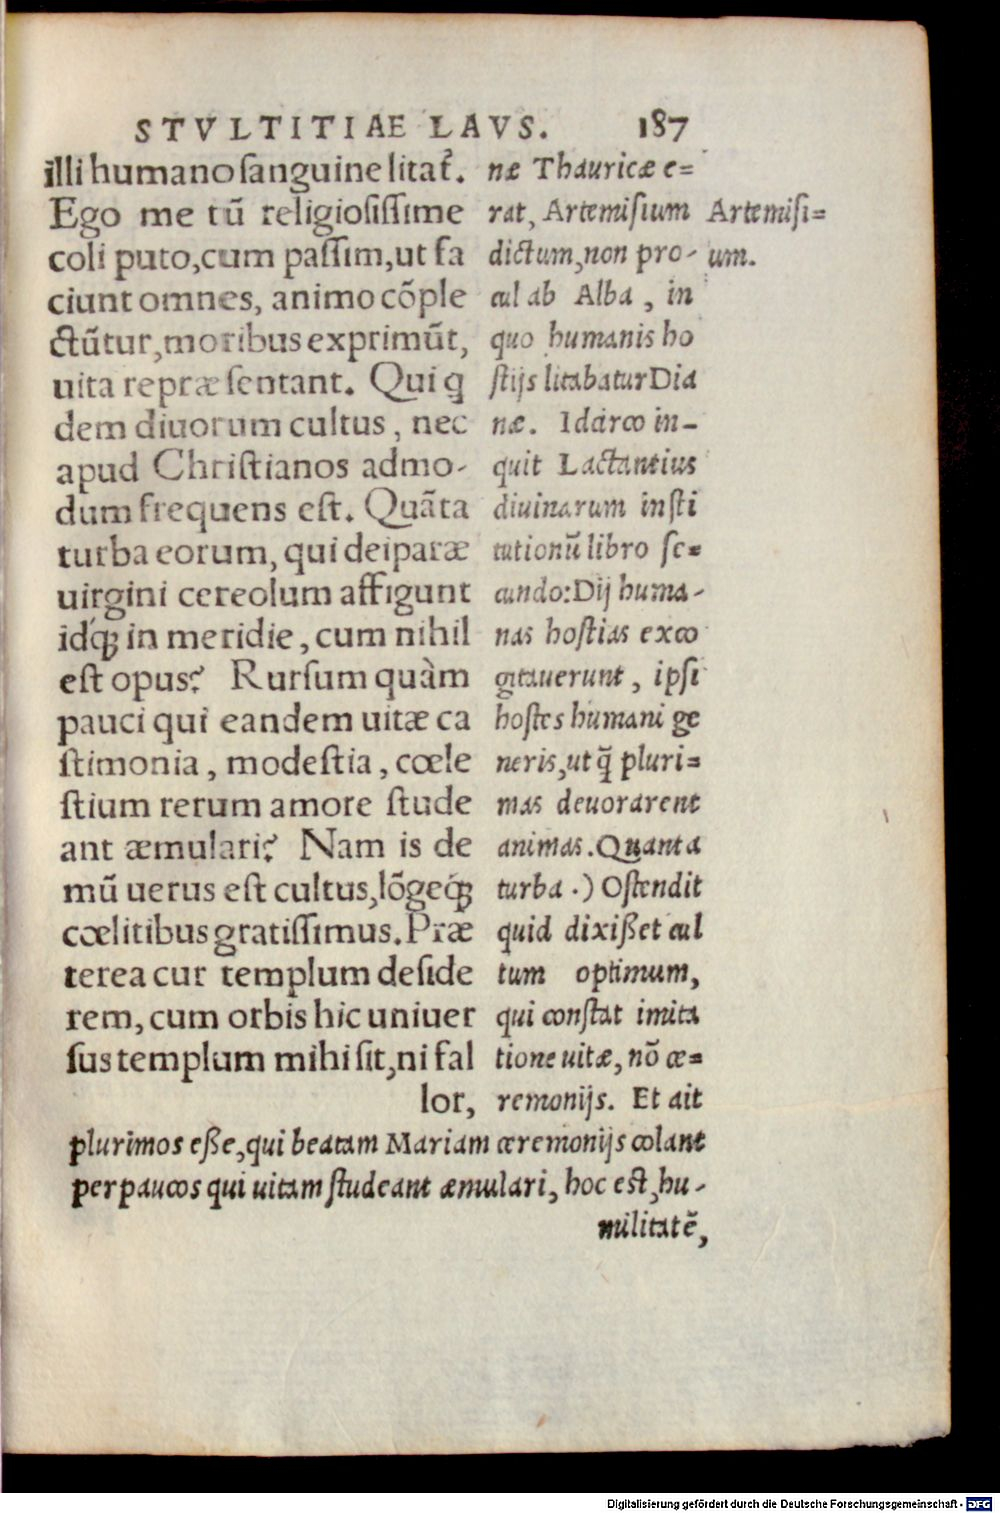 STVLTITIAE LAVS. 187
illi humano sanguine litat᷑.
Ego me tū religiosissime
coli puto, cum passim, ut fa
ciunt omnes, animo cōple
ctūtur, moribus exprimūt,
uita repræsentant. Qui ꝗ
dem diuorum cultus, nec
apud Christianos admo-
dum frequens est. Quāta
turba eorum, qui deiparæ
uirgini cereolum affigunt
idq́ꝫ in meridie, cum nihil
est opus? Rursum quàm
pauci qui eandem uitæ ca
stimonia, modestia, cœle
stium rerum amore stude
ant æmulari? Nam is de
mū uerus est cultus, lōgeq́ꝫ
cœlitibus gratissimus. Præ
terea cur templum deside
rem, cum orbis hic uniuer
sus templum mihi sit, ni fal
lor,
næ Thauricæ e=
rat, Artemisium
dictum, non pro-
cul ab Alba, in
quo humanis ho
stijs litabatur Dia
næ. Id circo in-
quit Lactantius
diuinarum insti
tutionū libro se=
cundo: Dij huma-
nas hostias exco
gitauerunt, ipsi
hostes humani ge
neris, ut q̄ pluri=
mas deuorarent
animas. Quanta
turba .) Ostendit
quid dixißet cul
tum optimum,
qui constat imita
tione uitæ, nō ce=
remonijs. Et ait
Artemisi=
um.
plurimos eße, qui beatam Mariam ceremonijs colant
perpaucos qui uitam studeant æmulari, hoc est, hu-
militatē,
Digitalisierung gefördert durch die Deutsche Forschungsgemeinschaft - DFG